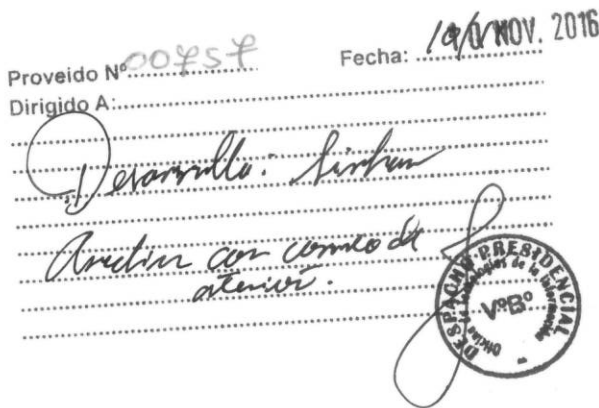 Proveido Nº 00757
Fecha: 10 NOV. 2016
Dirigido A:
Desarrollo:
con correo de
DESPACHO PRESIDENCIAL
Oficina de Tecnologías de la Información
VºBº